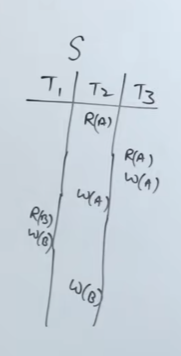 S
T1 T2 T3
R(A)
R(A)
W(A)
W(A)
R(B)
W(B)
W(B)